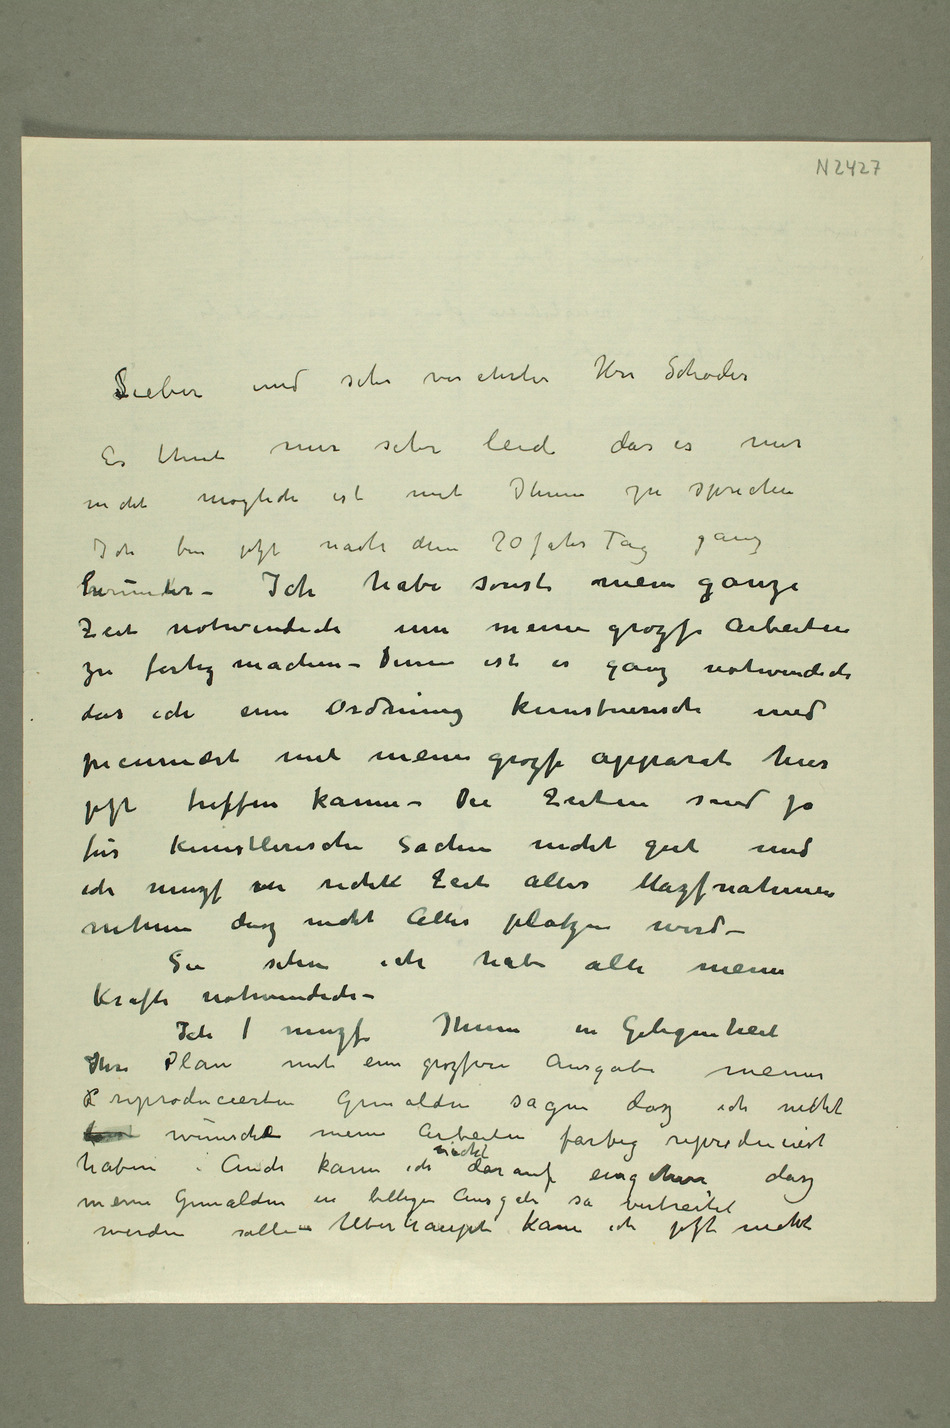 N 2427
Lieber und sehr verehrter Herr Schroder
Es thut mir sehr leid das es mir
nicht möglich ist mit Ihnen zu sprechen
Ich bin jetzt nach dem 70 jahrs Tag ganz
herunter – Ich habe sonst mein ganze
Zeit notwendich um meine grozse Arbeiten
zu fertig machen – Denn ist es ganz notwendich
das ich eine Ordnung kunstnerisch und
picuniert mit meine grozse apparat hier
jest treffen kann – Die Zeiten sind ja
für künstlerische Sachen nicht gut und
ich muzs in richtik Zeit alles Mazsnahmen
nehmen dasz nicht Alles platzen wird –
Sie sehen ich habe alle meine
Krafte notwendich –
Ich muzs Ihnen in Gelegenheit
Ihre Plan mit eine grozsere Ausgabe meiner
reproducierten Gemälden sagen dasz ich nicht
wünsche meine Arbeiten farbig reproduciert
haben. Auch kann ich nicht darauf eingehen, dasz
meine Gemälden in billige Ausgabe so verbreitet
werden sollen Uberhaupt kann ich jest nicht